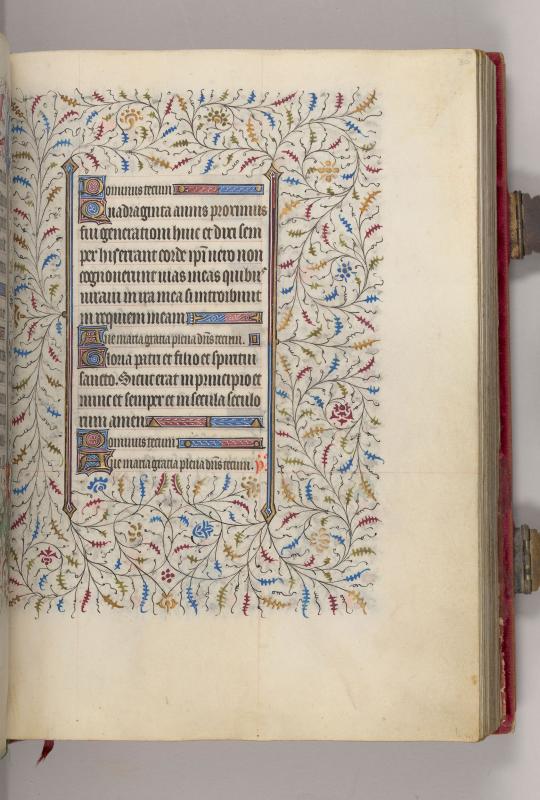 Dominus tecum
Quadraginta annis proximus
fui generationi huic et dixi sem
per hi errant corde ipi uero non
cognouerunt uias meas quibus
iuraui in ira mea si introibunt
in requiem meam
Aue maria gratia plena dns tecum.
Gloria patri et filio et spiritui
sancto. Sicut erat in principio et
nunc et semper et in secula seculo
rum amen
Dominus tecum
Aue maria gratia plena dns tecum. p